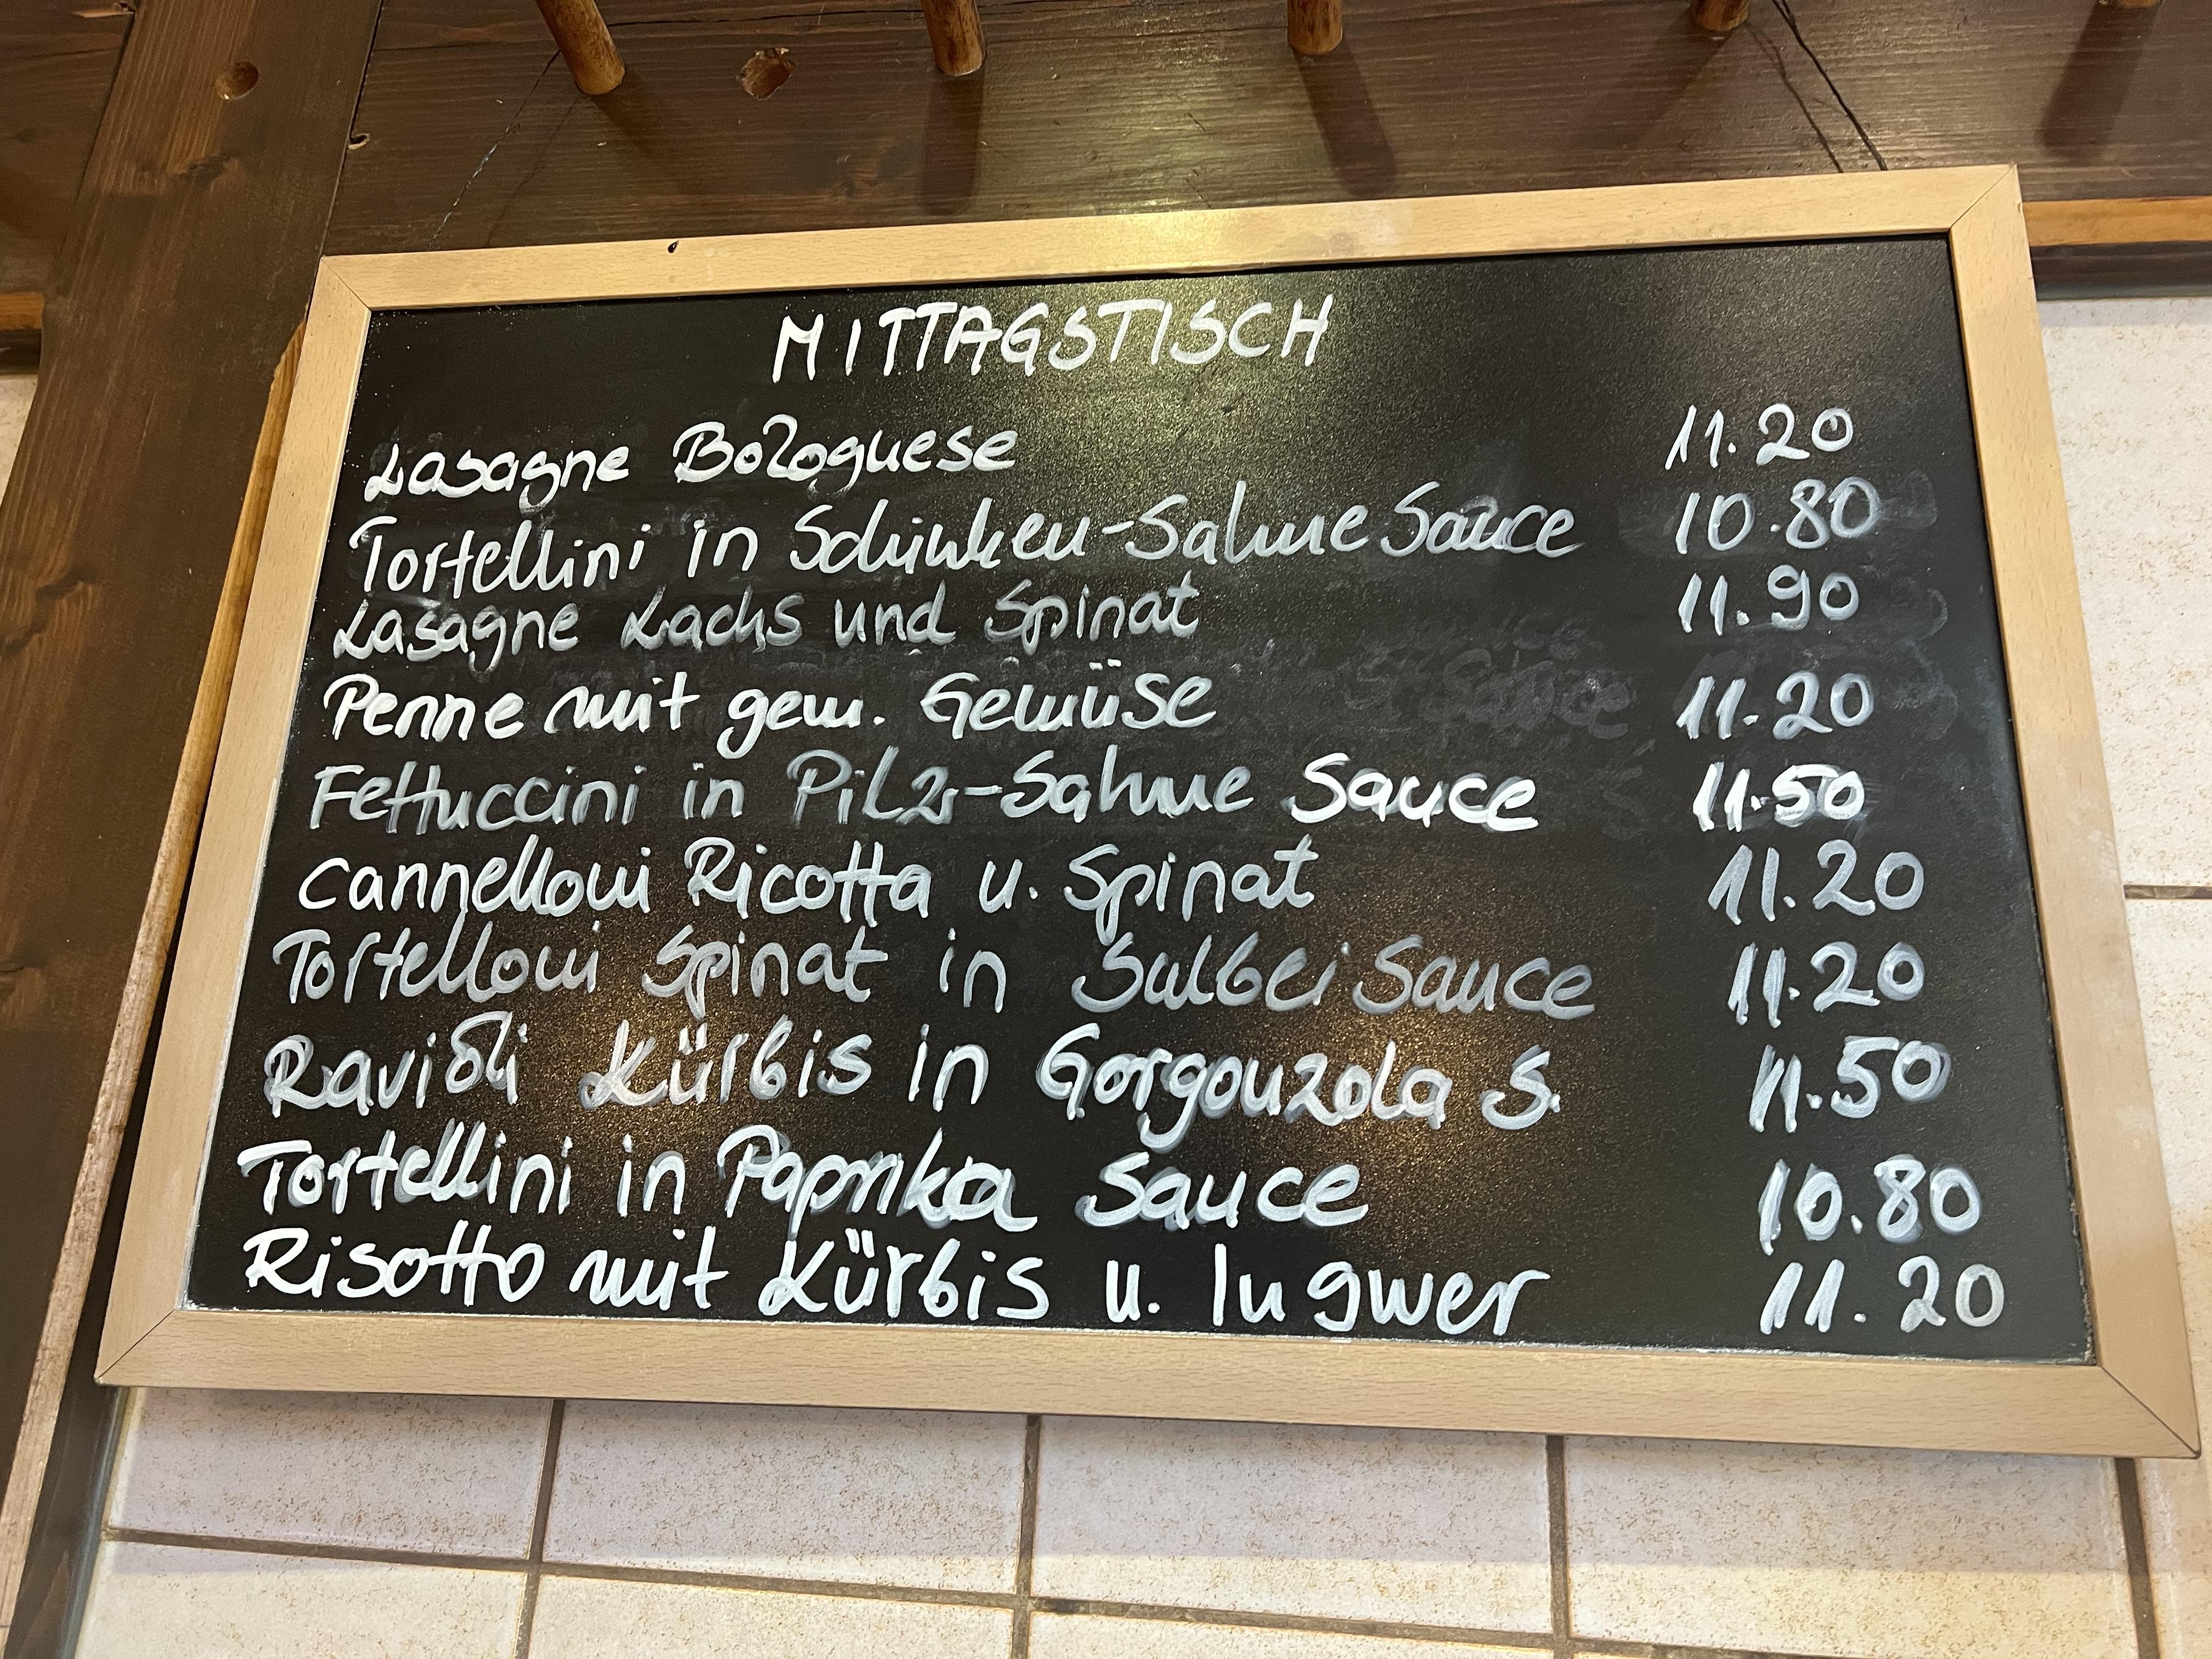 MITTAGSTISCH
Lasagne Bolognese 11.20
Tortellini in Schinken-Sahne Sauce 10.80
Lasagne Lachs und Spinat 11.90
Penne mit gem. Gemüse 11.20
Fettuccini in Pilz-Sahne Sauce 11.50
Cannelloni Ricotta u. Spinat 11.20
Tortelloni Spinat in Salbei Sauce 11.20
Ravioli Kürbis in Gorgonzola S. 11.50
Tortellini in Paprika Sauce 10.80
Risotto mit Kürbis u. Ingwer 11.20